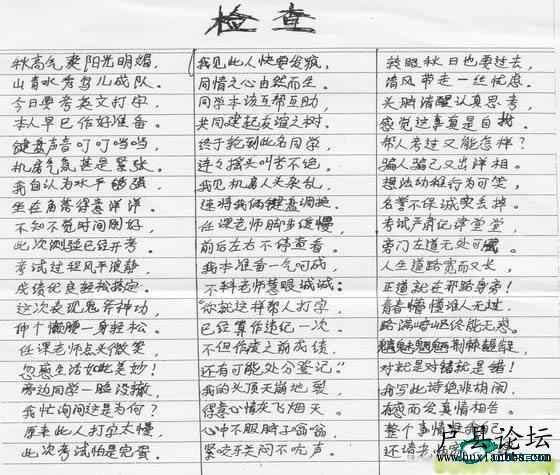 检查
秋高气爽阳光明媚，
山青水秀鸟儿成队。
今日要考英文打字，
本人早已作好准备。
键盘声音叮叮当当，
机房气氛甚是紧张。
我自认为水平
坐在角落得意洋洋。
不知不觉时间刚好，
此次测验已经开考。
考试过程风平浪静，
成绩优良轻松搞定。
这次表现鬼斧神功，
伸个懒腰一身轻松。
任课老师点头微笑，
忽感生活如此美妙！
旁边同学一脸没辙，
我忙询问这是为何？
原来此人打字太慢，
此次考试怕是完蛋。
我见此人快要发疯，
同情之心由然而生。
同学本该互帮互助，
共同建起友谊之树。
终于轮到此名同学，
连连摇头叫苦不饱。
我见机房人头杂乱，
速将我俩键盘调换。
任课老师脚步缓慢，
前后左右不停查看。
我本准备一气呵成，
不料老师慧眼诚诚。
你就这样帮人打字，
已经算作违纪一次。
不但作废之前成绩，
还有可能处分登记。
我的头顶天崩地裂，
得意心情灰飞烟灭。
心中不服脖子
紧咬牙关闷不吭声。
转眼秋日也要过去，
清风带走一丝忧虑。
头脑清醒认真思考，
感觉这事真是自
帮人考过又能怎样？
骗人骗己又出洋相。
想法幼稚行为可笑，
名誉不保诚实去掉。
考试严肃记律堂堂，
旁门左道无处可
人生道路宽而又长，
正道就在那路旁旁！
青春懵懂谁人无过，
路满崎岖终能无悲。
对就是对错就是错！
我写此诗绝非胡闹，
有感而发真情相告。
整个事情
还请老师
户县论坛
www.huxianbbs.com